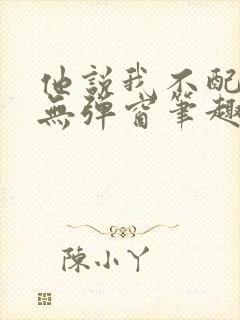 他說我不配
無彈窗筆趣
陳小丫